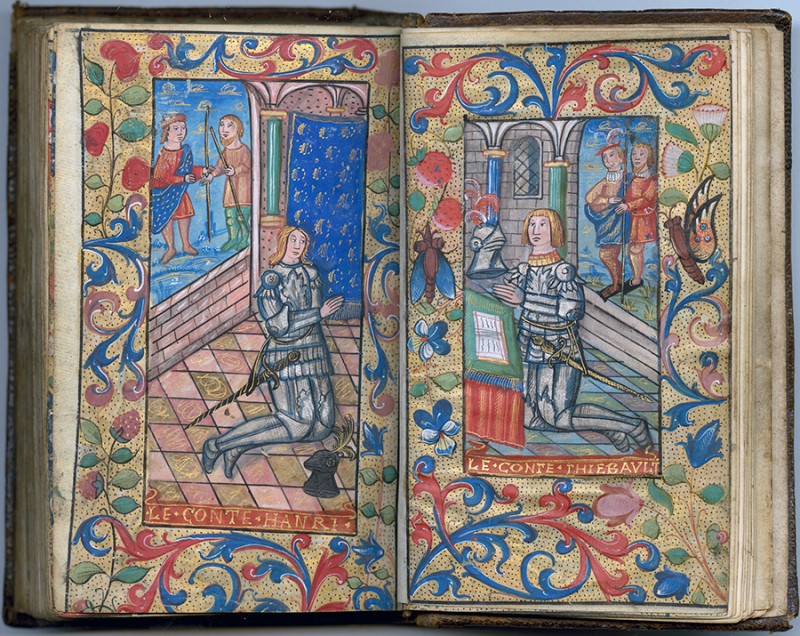 LE·CONTE·HANRI·
LE·CONTE·THIEBAULT